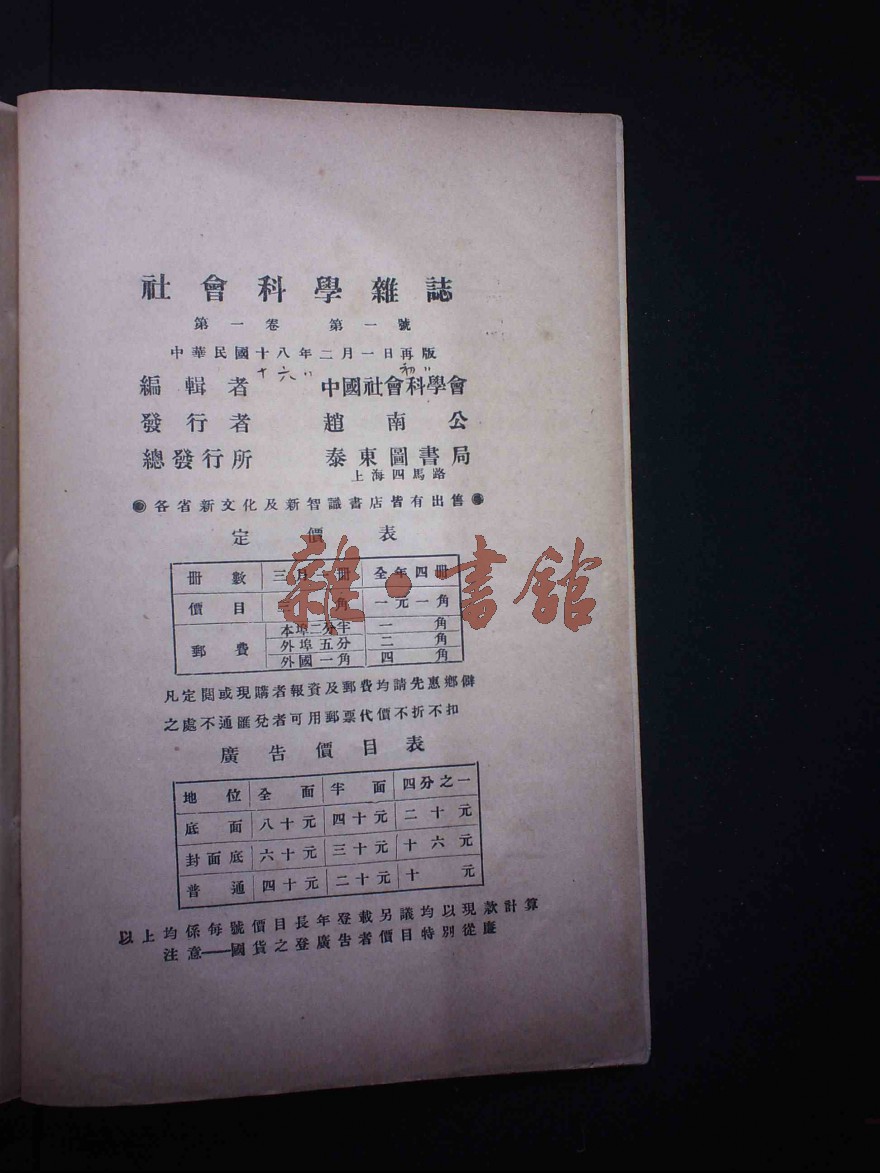 社會科學雜誌
第一卷 第一號
中華民國十八年二月一日再版
十六〃 初〃
編輯者 中國社會科學會
發行者 趙南公
總發行所 泰東圖書局
上海四馬路
各省新文化及新智識書店皆有出售
定價表
冊數 三月一冊 全年四冊
價目 三角 一元一角
郵費 本埠二分半 一角
外埠五分 二角
外國一角 四角
雜·書館
凡定閱或現購者報資及郵費均請先惠鄉僻
之處不通匯兌者可用郵票代價不折不扣
廣告價目表
地位 全面 半面 四分之一
底面 八十元 四十元 二十元
封面底 六十元 三十元 十六元
普通 四十元 二十元 十元
以上均係每號價目長年登載另議均以現款計算
注意——國貨之登廣告者價目特別從廉